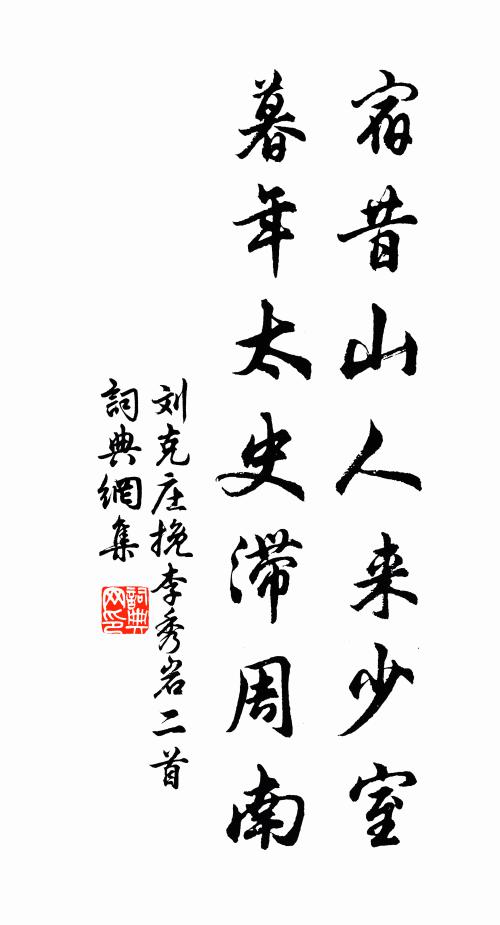 宿昔山人来少室
暮年太史滞周南
刘克庄挽李秀岩二首
詞典網集
詞典网印